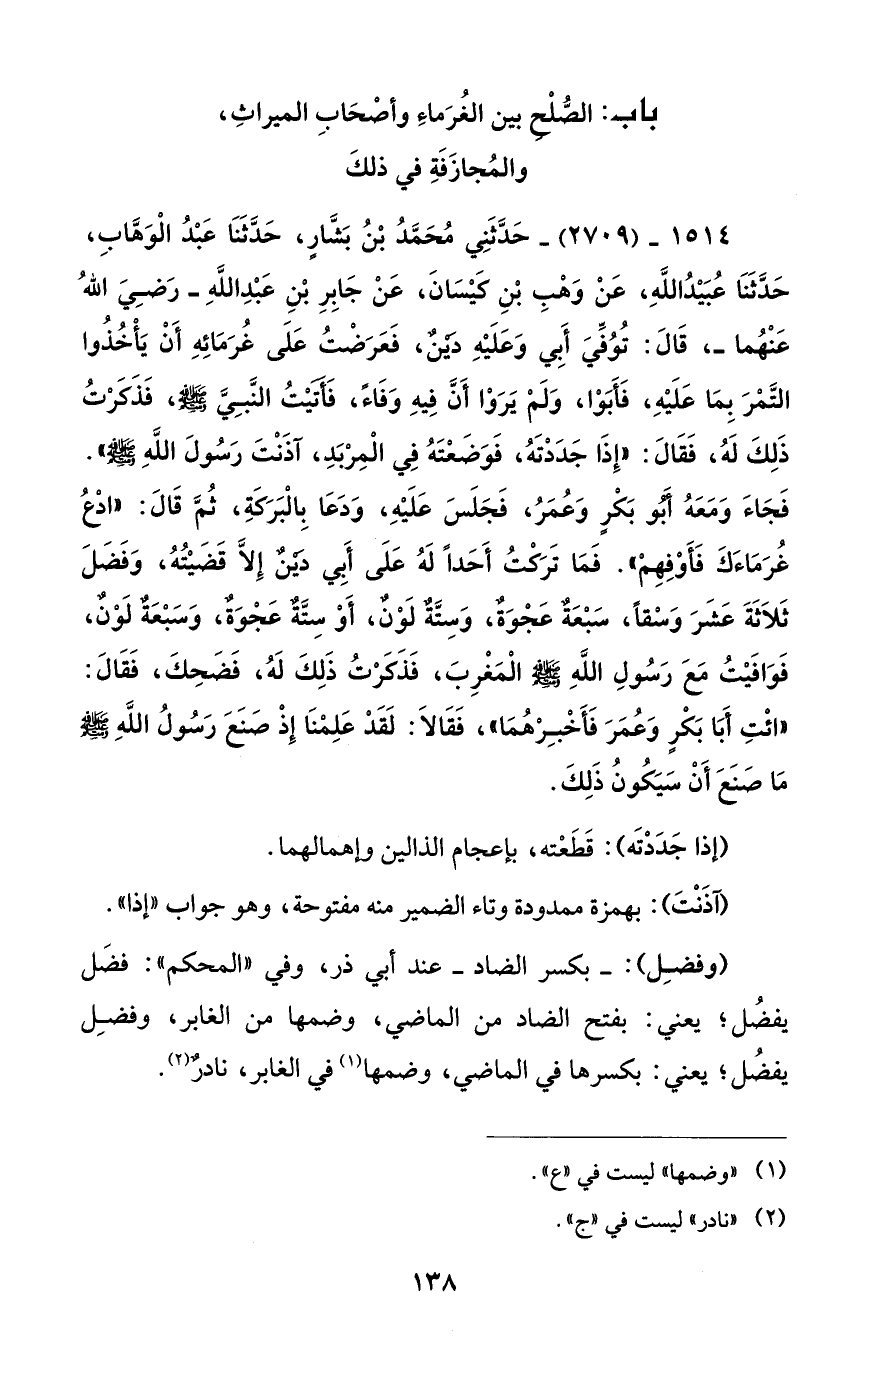 باب: الصُّلْحِ بين الغُرَماءِ وأصْحَابِ الميراثِ،
والمُجازَفَةِ في ذلكَ
١٥١٤ ـ (٢٧٠٩) ـ حَدَّثَنِي مُحَمَّدُ بْنُ بَشَّارٍ، حَدَّثَنَا عَبْدُ الْوَهَّابِ،
حَدَّثَنَا عُبَيْدُاللَّهِ، عَنْ وَهْبِ بْنِ كَيْسَانَ، عَنْ جَابِرِ بْنِ عَبْدِاللَّهِ ـ رَضِيَ اللهُ
عَنْهُما ـ، قَالَ: تُوُفِّيَ أَبِي وَعَلَيْهِ دَيْنٌ، فَعَرَضْتُ عَلَى غُرَمَائِهِ أَنْ يَأْخُذُوا
التَّمْرَ بِمَا عَلَيْهِ، فَأَبَوْا، وَلَمْ يَرَوْا أَنَّ فِيهِ وَفَاءً، فَأَتَيْتُ النَّبِيَّ ﷺ، فَذَكَرْتُ
ذَلِكَ لَهُ، فَقَالَ: «إِذَا جَدَدْتَهُ، فَوَضَعْتَهُ فِي الْمِرْبَدِ، آذَنْتَ رَسُولَ اللَّهِ ﷺ».
فَجَاءَ وَمَعَهُ أَبُو بَكْرٍ وَعُمَرُ، فَجَلَسَ عَلَيْهِ، وَدَعَا بِالْبَرَكَةِ، ثُمَّ قَالَ: «ادْعُ
غُرَمَاءَكَ فَأَوْفِهِمْ». فَمَا تَرَكْتُ أَحَداً لَهُ عَلَى أَبِي دَيْنٌ إِلاَّ قَضَيْتُهُ، وَفَضَلَ
ثَلاَثَةَ عَشَرَ وَسْقاً، سَبْعَةٌ عَجْوَةٌ، وَسِتَّةٌ لَوْنٌ، أَوْ سِتَّةٌ عَجْوَةٌ، وَسَبْعَةٌ لَوْنٌ،
فَوَافَيْتُ مَعَ رَسُولِ اللَّهِ ﷺ الْمَغْرِبَ، فَذَكَرْتُ ذَلِكَ لَهُ، فَضَحِكَ، فَقَالَ:
«ائْتِ أَبَا بَكْرٍ وَعُمَرَ فَأَخْبِرْهُمَا»، فَقَالاَ: لَقَدْ عَلِمْنَا إِذْ صَنَعَ رَسُولُ اللَّهِ ﷺ
مَا صَنَعَ أَنْ سَيَكُونُ ذَلِكَ.
(إذا جَدَدْتَه): قَطَعْته، بإعجام الذالين وإهمالهما.
(آذَنْتَ): بهمزة ممدودة وتاء الضمير منه مفتوحة، وهو جواب «إذا».
(وفضِل): ـ بكسر الضاد ـ عند أبي ذر، وفي «المحكم»: فضَل
يفضُل؛ يعني: بفتح الضاد من الماضي، وضمها من الغابر، وفضِل
يفضُل؛ يعني: بكسرها في الماضي، وضمها(١) في الغابر، نادرٌ(٢).
(١) «وضمها» ليست في «ع».
(٢) «نادر» ليست في «ج».
١٣٨